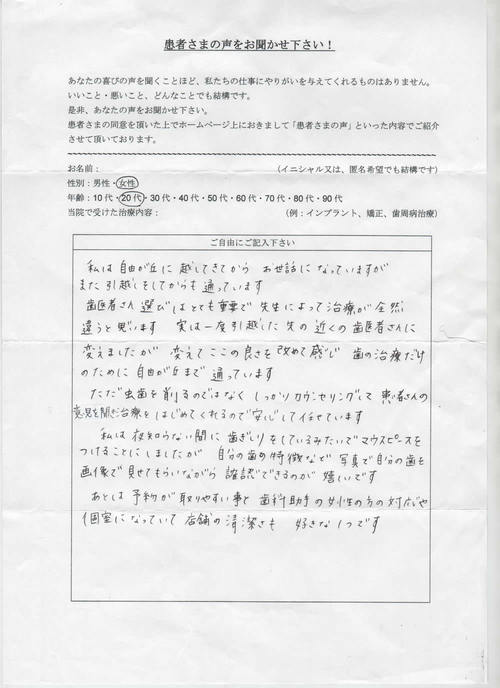 患者さまの声をお聞かせ下さい！
あなたの喜びの声を聞くことほど、私たちの仕事にやりがいを与えてくれるものはありません。
いいこと・悪いこと、どんなことでも結構です。
是非、あなたの声をお聞かせ下さい。
患者さまの同意を頂いた上でホームページ上におきまして「患者さまの声」といった内容でご紹介
させて頂いております。
お名前： （イニシャル又は、匿名希望でも結構です）
性別：男性・女性
年齢：10代・20代・30代・40代・50代・60代・70代・80代・90代
当院で受けた治療内容： （例：インプラント、矯正、歯周病治療）
ご自由にご記入下さい
私は自由が丘に越してきてから お世話になっていますが
また引越しをしてからも通っています
歯医者さん選びはとても重要で先生によって治療が全然
違うと思います 実は一度引越した先の近くの歯医者さんに
変えましたが 変えてここの良さを改めて感じ 歯の治療だけ
のために自由が丘まで通っています
ただ虫歯を削るのではなく しっかりカウンセリングして患者さんの
意見を聞き治療をはじめてくれるので安心して任せています
私は夜知らない間に歯ぎしりをしているみたいでマウスピースを
つけることにしましたが 自分の歯の特徴など 写真で自分の歯を
画像で見せてもらいながら 確認できるのが 嬉しいです
あとは予約が取りやすい事と 歯科助手の女性の方の対応や
個室になっていて 店舗の清潔さも 好きな1つです